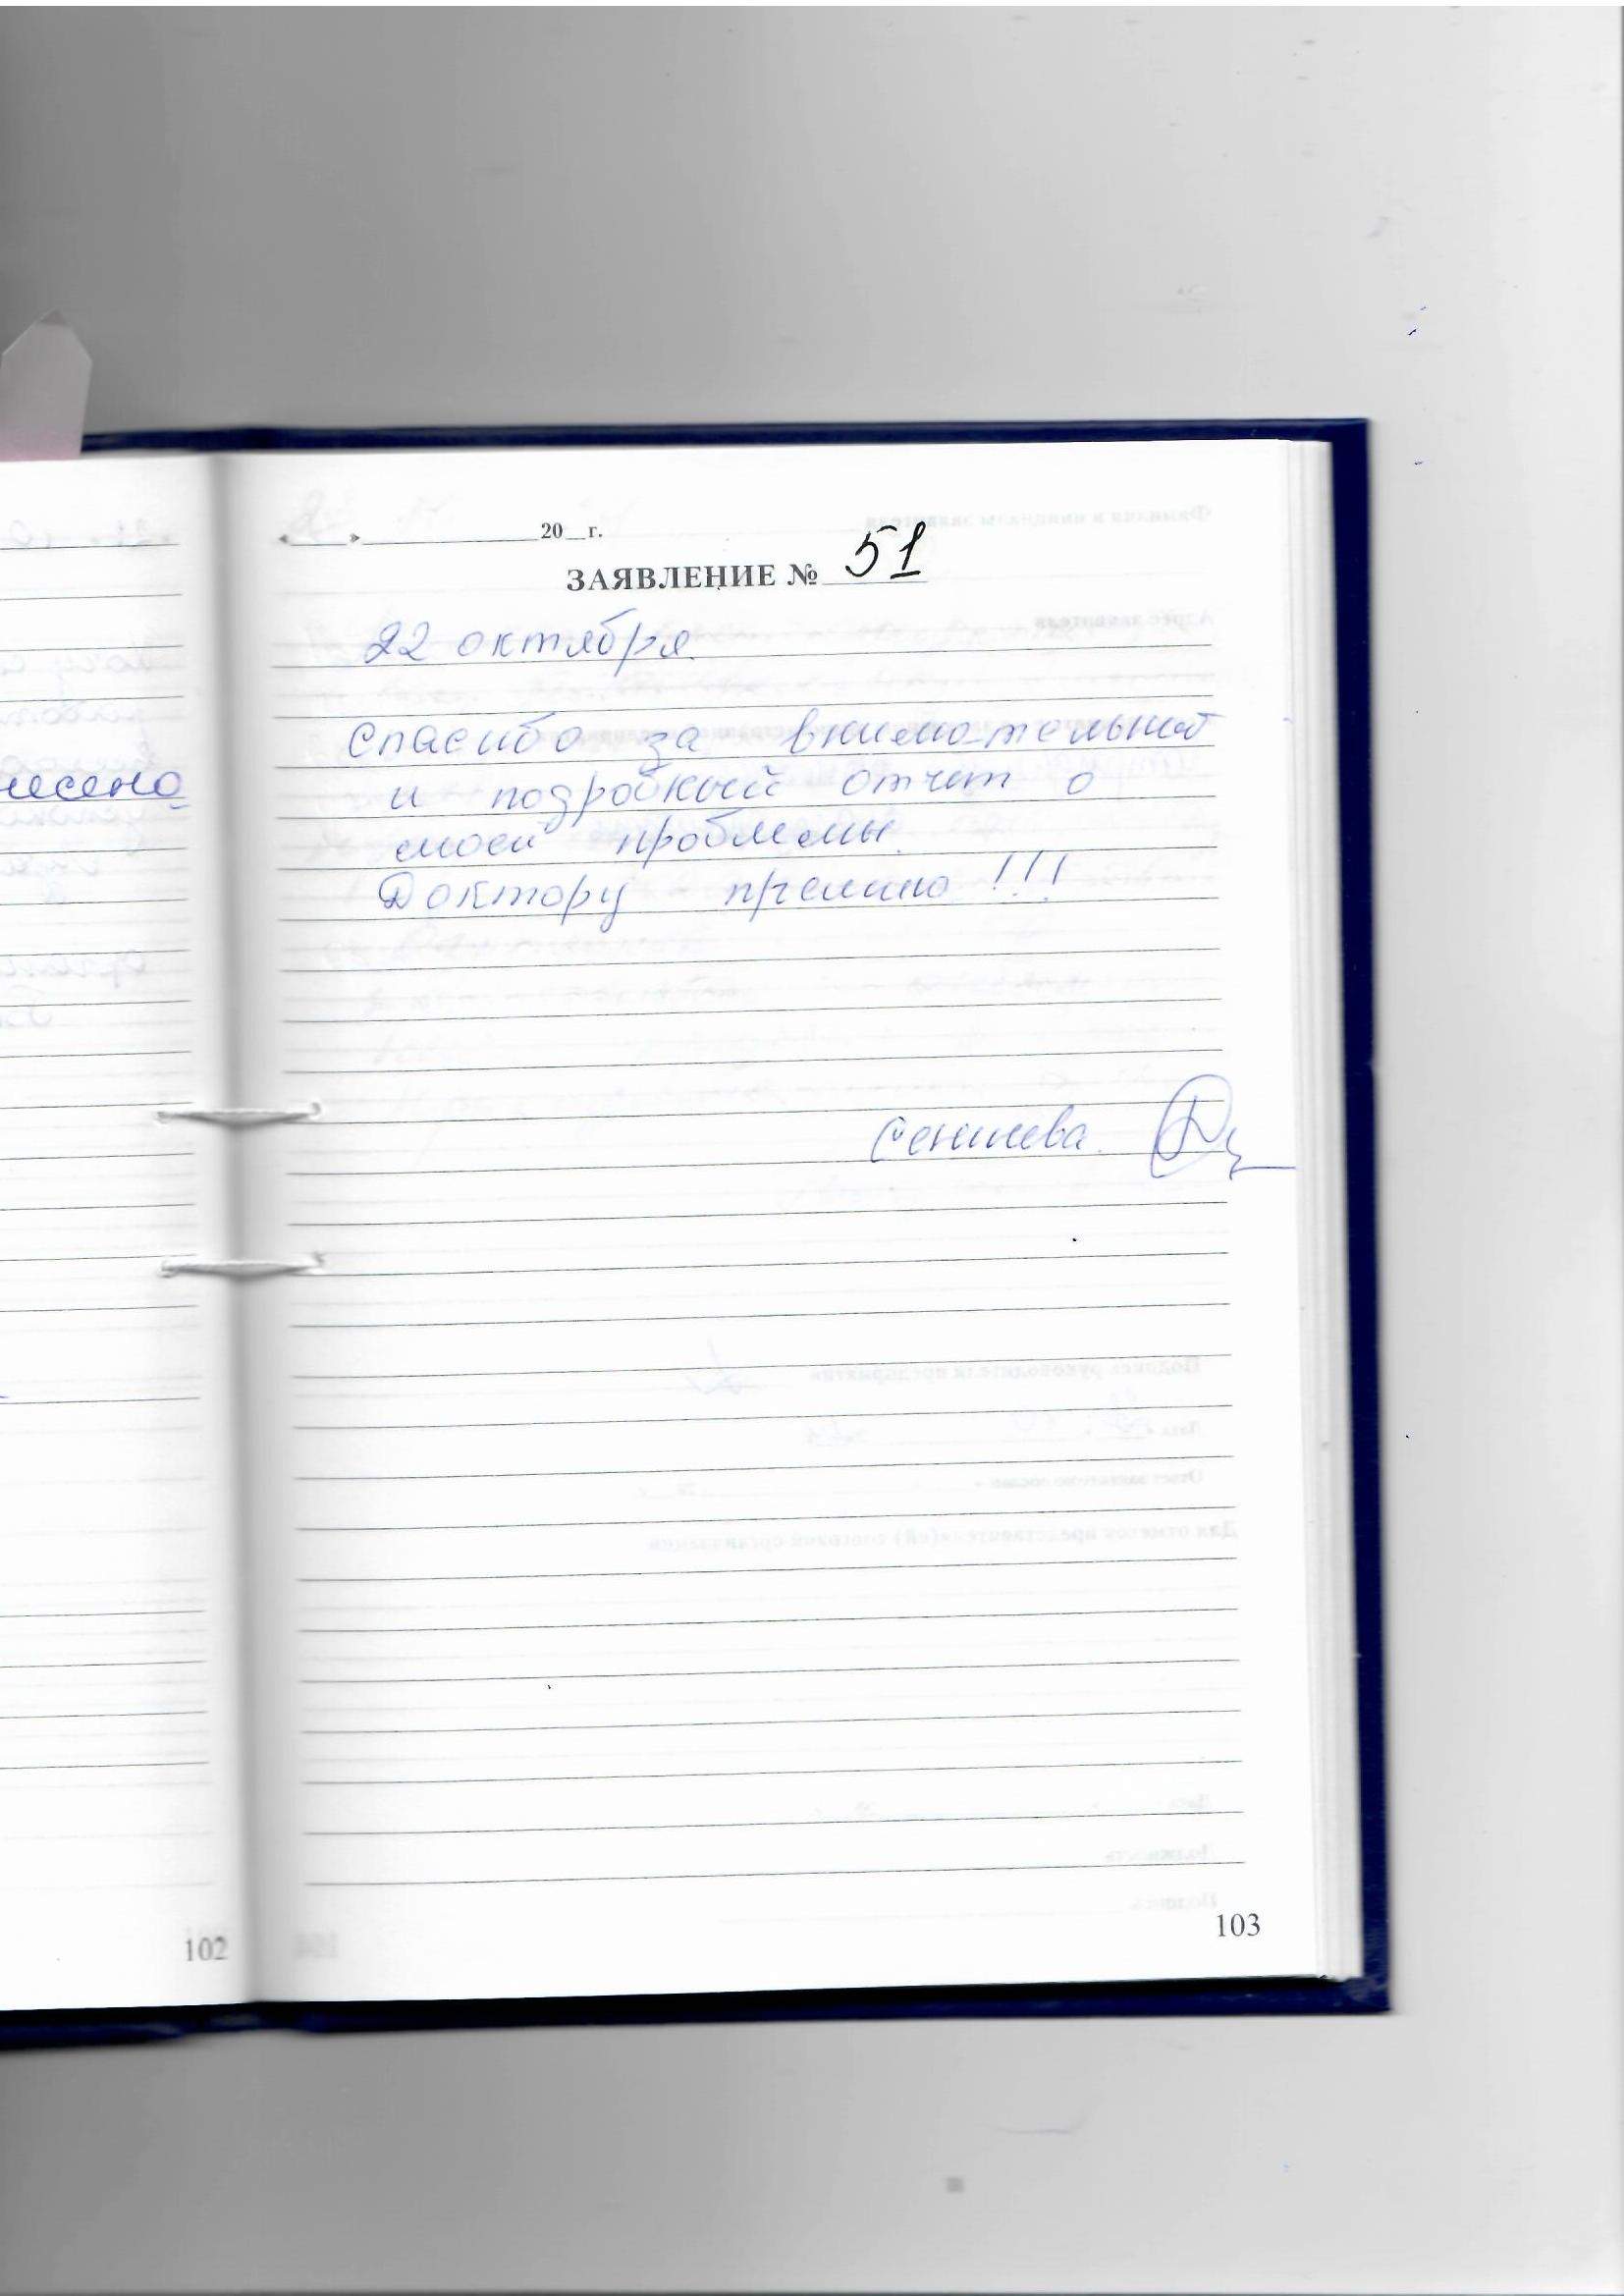 несено
102
« » 20 г.
ЗАЯВЛЕНИЕ № 51
22 октября.
Спасибо за внимательный
и подробный отчет о
моей проблемы.
Доктору премию!!!
103